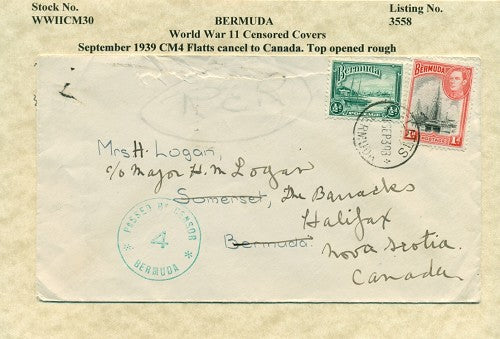 Stock No.
WWIICM30
BERMUDA
Listing No.
3558
World War 11 Censored Covers
September 1939 CM4 Flatts cancel to Canada. Top opened rough
BERMUDA
BERMUDA
POSTAGE
1D
Mrs H. Logan,
c/o Major H. M. Logan
Somerset, The Barracks
Halifax
Bermuda. Nova Scotia.
Canada
PASSED BY CENSOR
4
BERMUDA